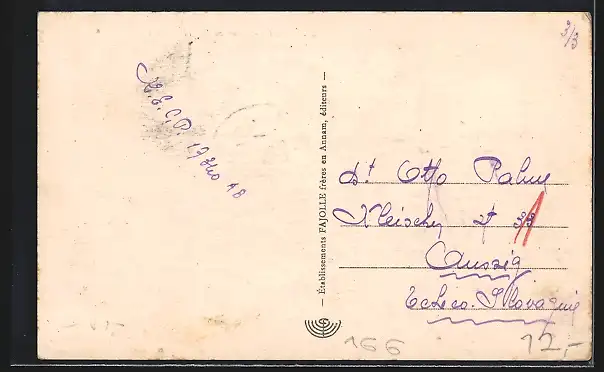 3/3
R.E.C.P.
— Établissements FAJOLLE frères en Annam, éditeurs —
Dt Otto Palme
Kleischer st 33
Aussig
Tcheco-Slovaquie
166
12,-